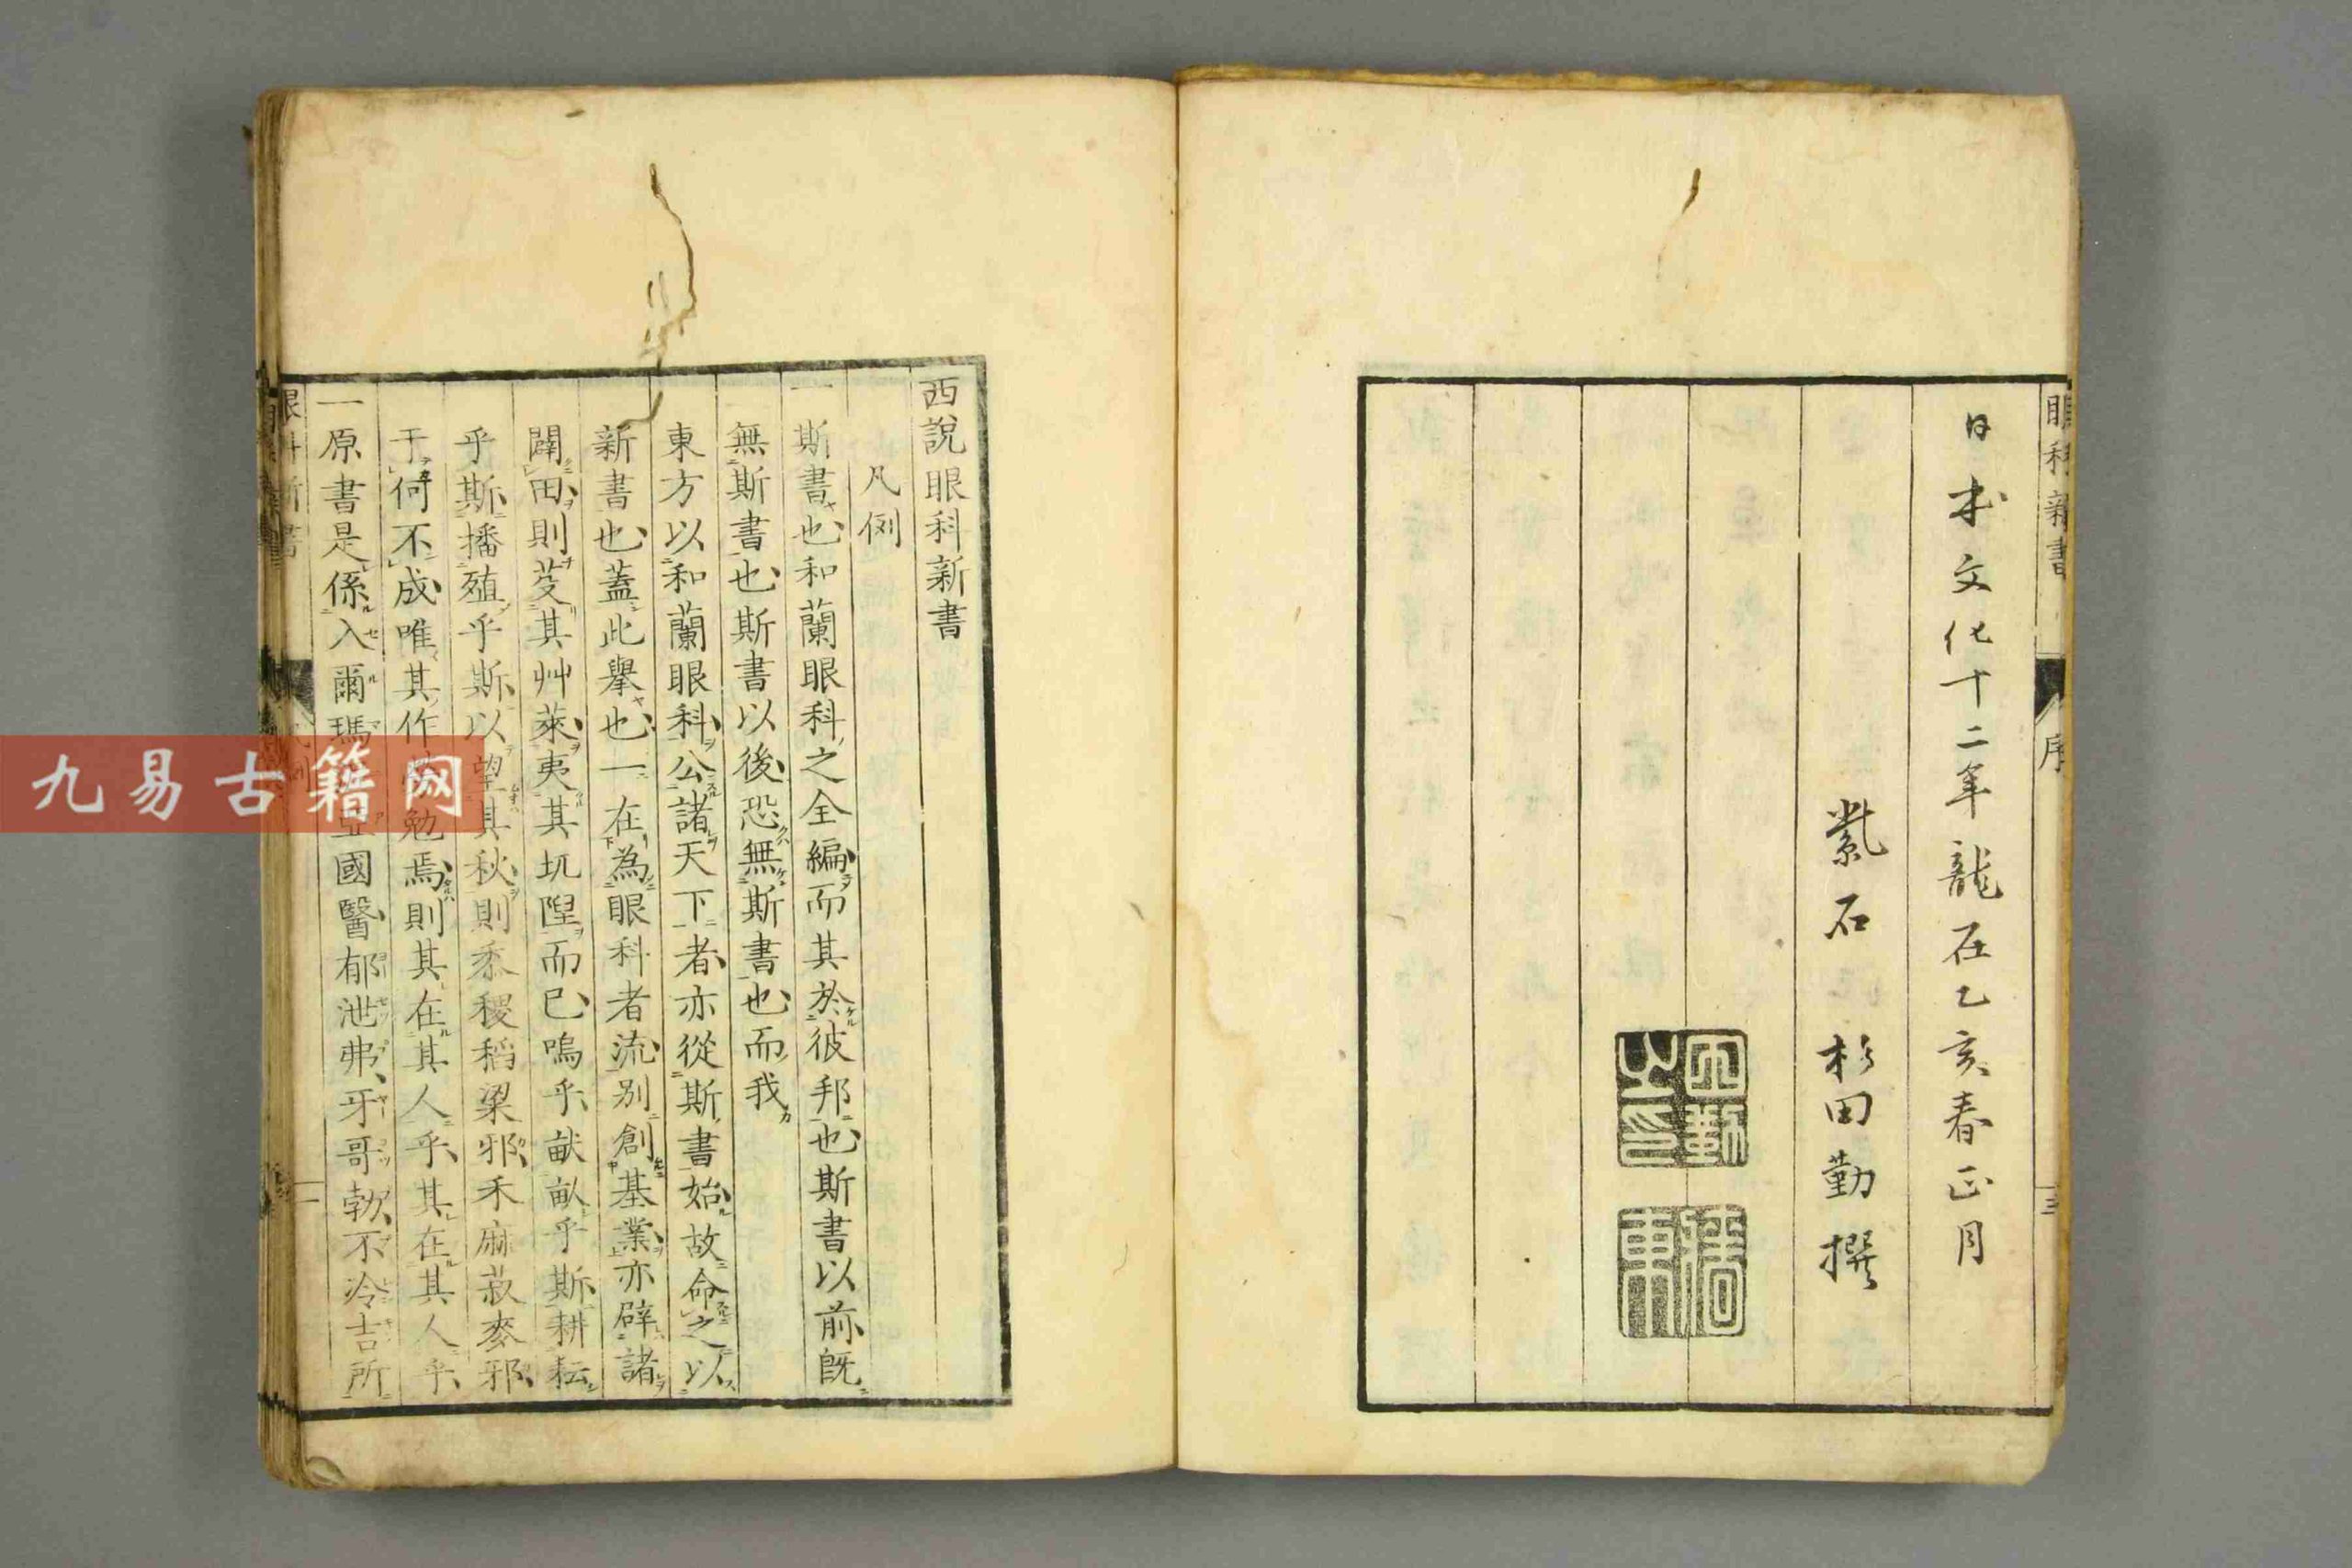 眼科新書
序
日本文化十二年龍在乙亥春正月
紫石 杉田勤撰
西說眼科新書
凡例
一斯書也和蘭眼科之全編而其於彼邦也斯書以前既
無斯書也斯書以後恐無斯書也而我
東方以和蘭眼科公諸天下者亦從斯書始故命之以
新書也蓋此舉也一在為眼科者流別創基業亦辟諸
闢田則芟其艸萊夷其坑隉而已嗚乎畎畝乎斯耕耘
乎斯播殖乎斯以望其秋則黍稷稻粱邪禾麻菽麥邪
于何不成唯其作勉焉則其在其人乎其在其人乎
一原書是係入爾瑪亞國醫郁泄弗牙哥勃不冷吉所
九易古籍网